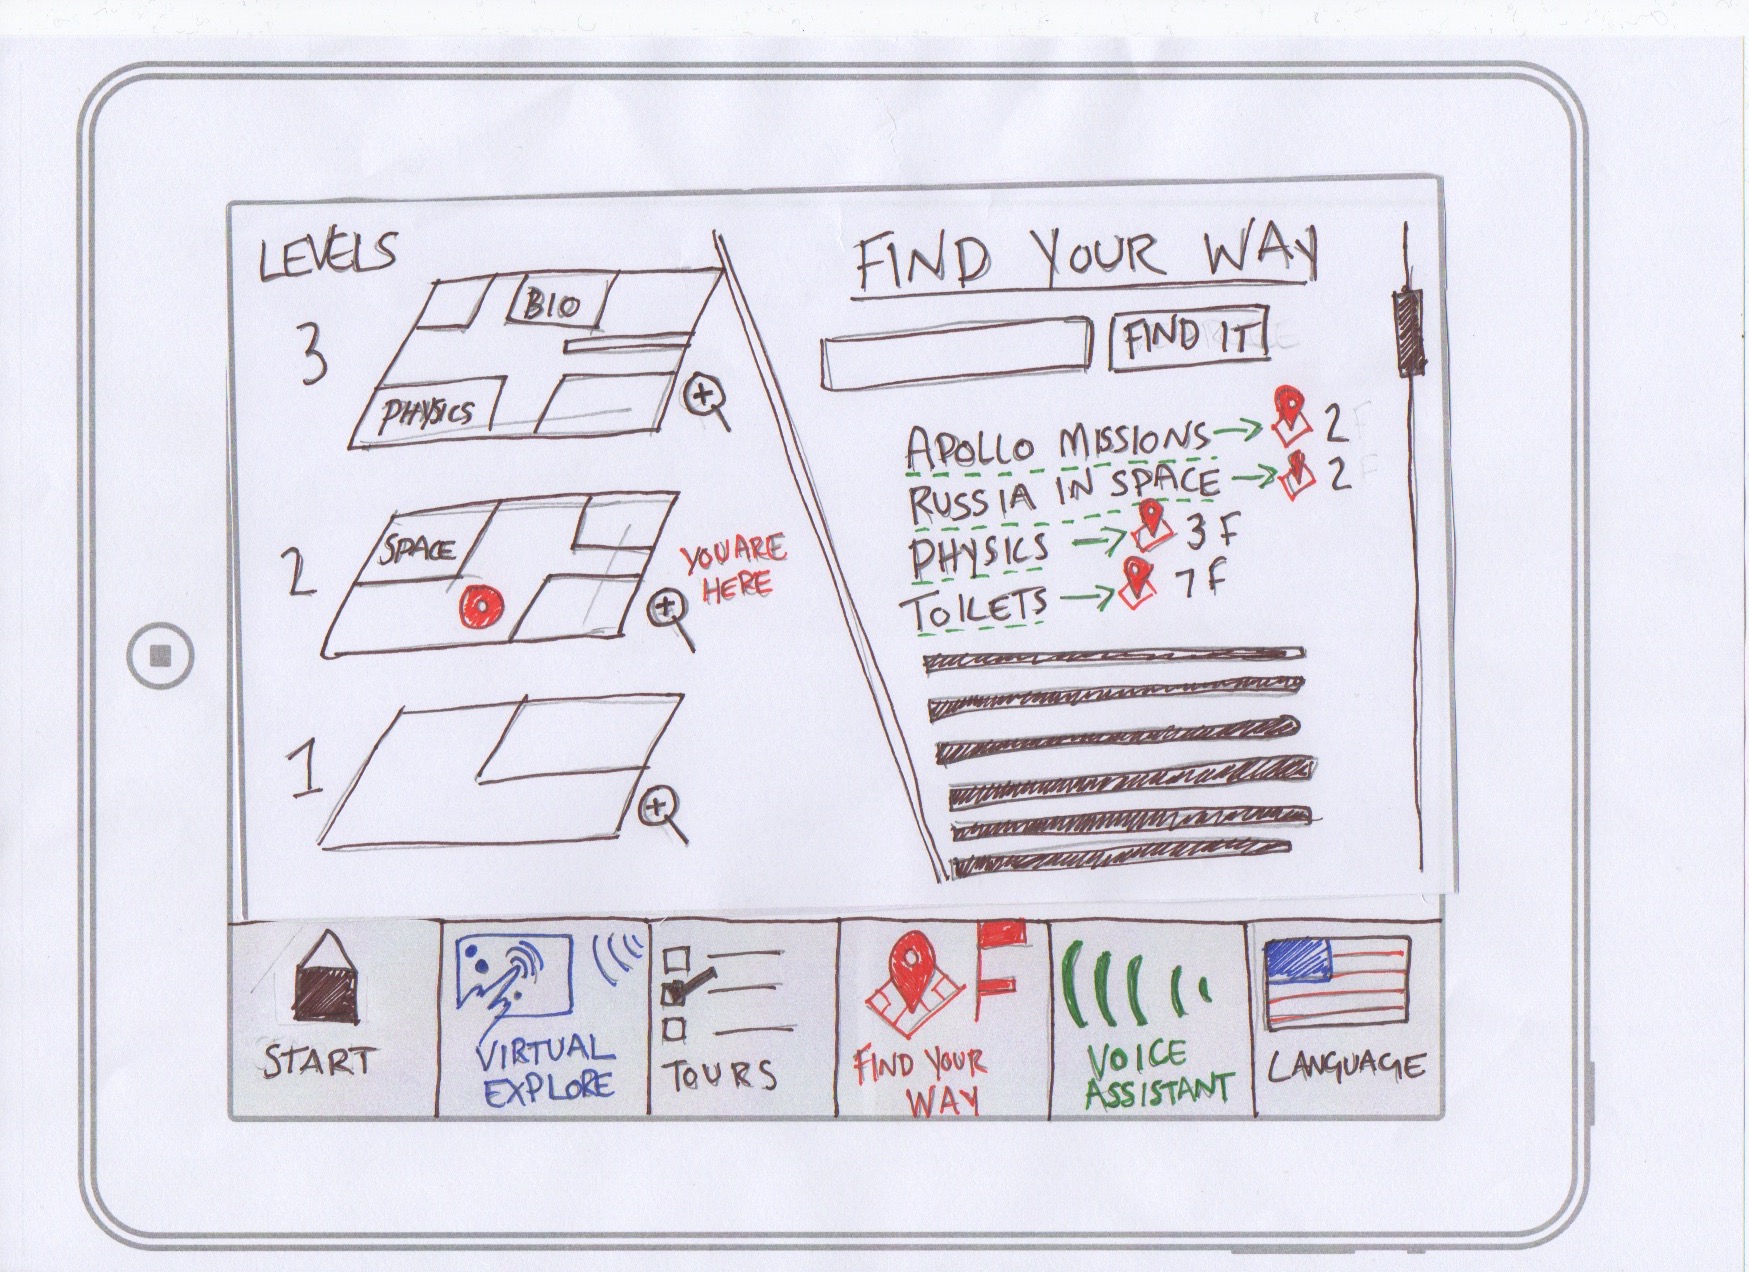 LEVELS
3
BIO
PHYSICS
2
SPACE
YOU ARE
HERE
1
FIND YOUR WAY
FIND IT
APOLLO MISSIONS → 2
RUSSIA IN SPACE → 2
PHYSICS → 3 F
TOILETS → 1 F
START
VIRTUAL
EXPLORE
TOURS
FIND YOUR
WAY
VOICE
ASSISTANT
LANGUAGE